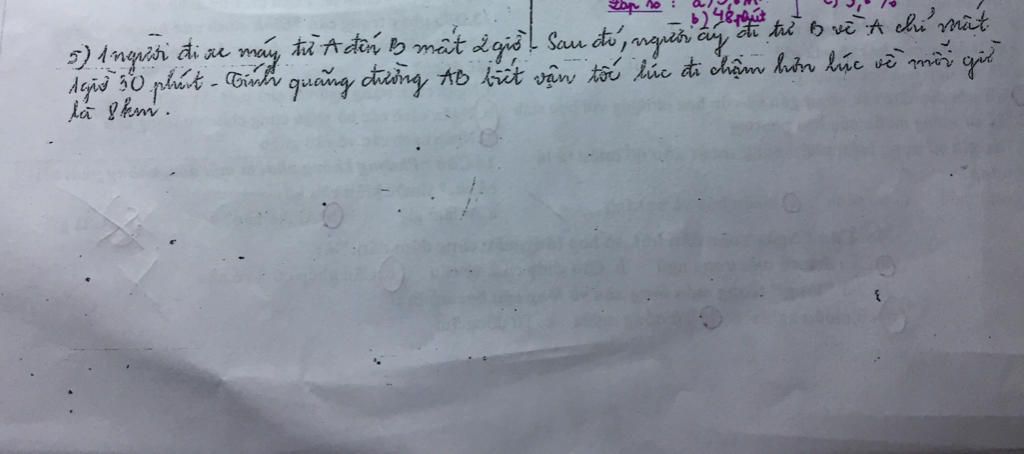 Đáp số : a)
b) 48 phút
5) 1 người đi xe máy từ A đến B mất 2 giờ. Sau đó, người ấy đi từ B về A chỉ mất
1 giờ 30 phút - Tính quãng đường AB biết vận tốc lúc đi chậm hơn lúc về mỗi giờ
là 8km.